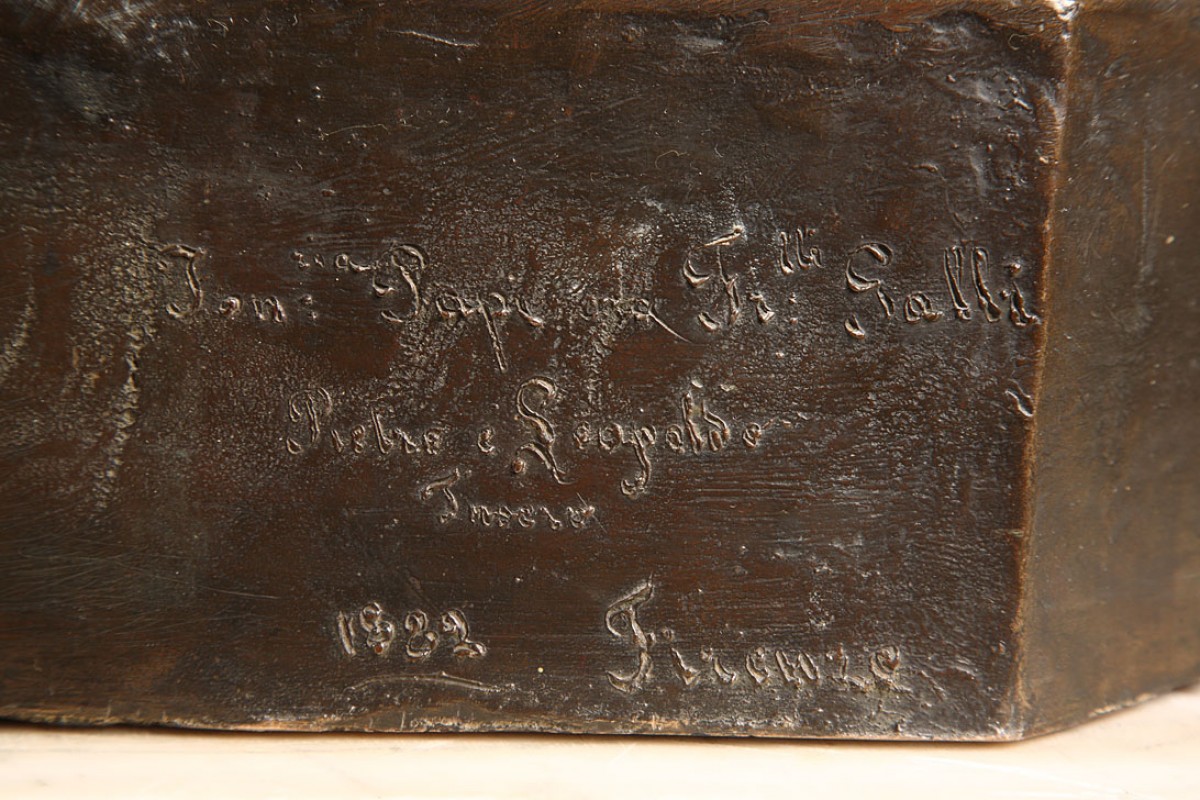 Fon:ria Papi ora Fr:lli Galli
Pietro e Leopoldo
Fusero
1882 Firenze